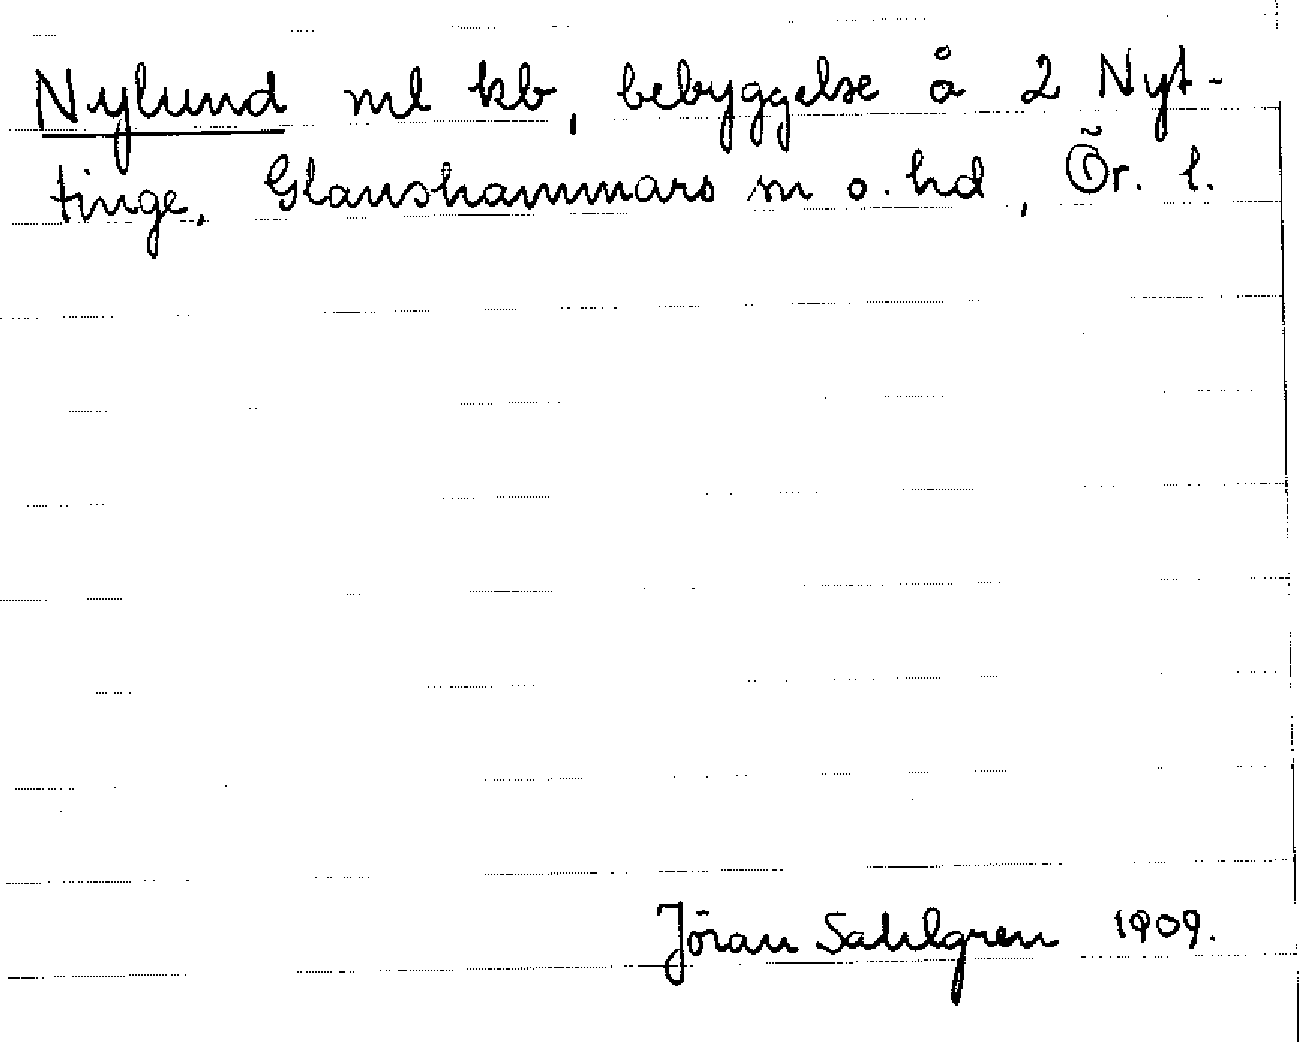 Nylund ml kb, bebyggelse å 2 Nyt-
tinge, Glanshammars sn o. hd, Ör. l.
Jöran Sahlgren 1909.